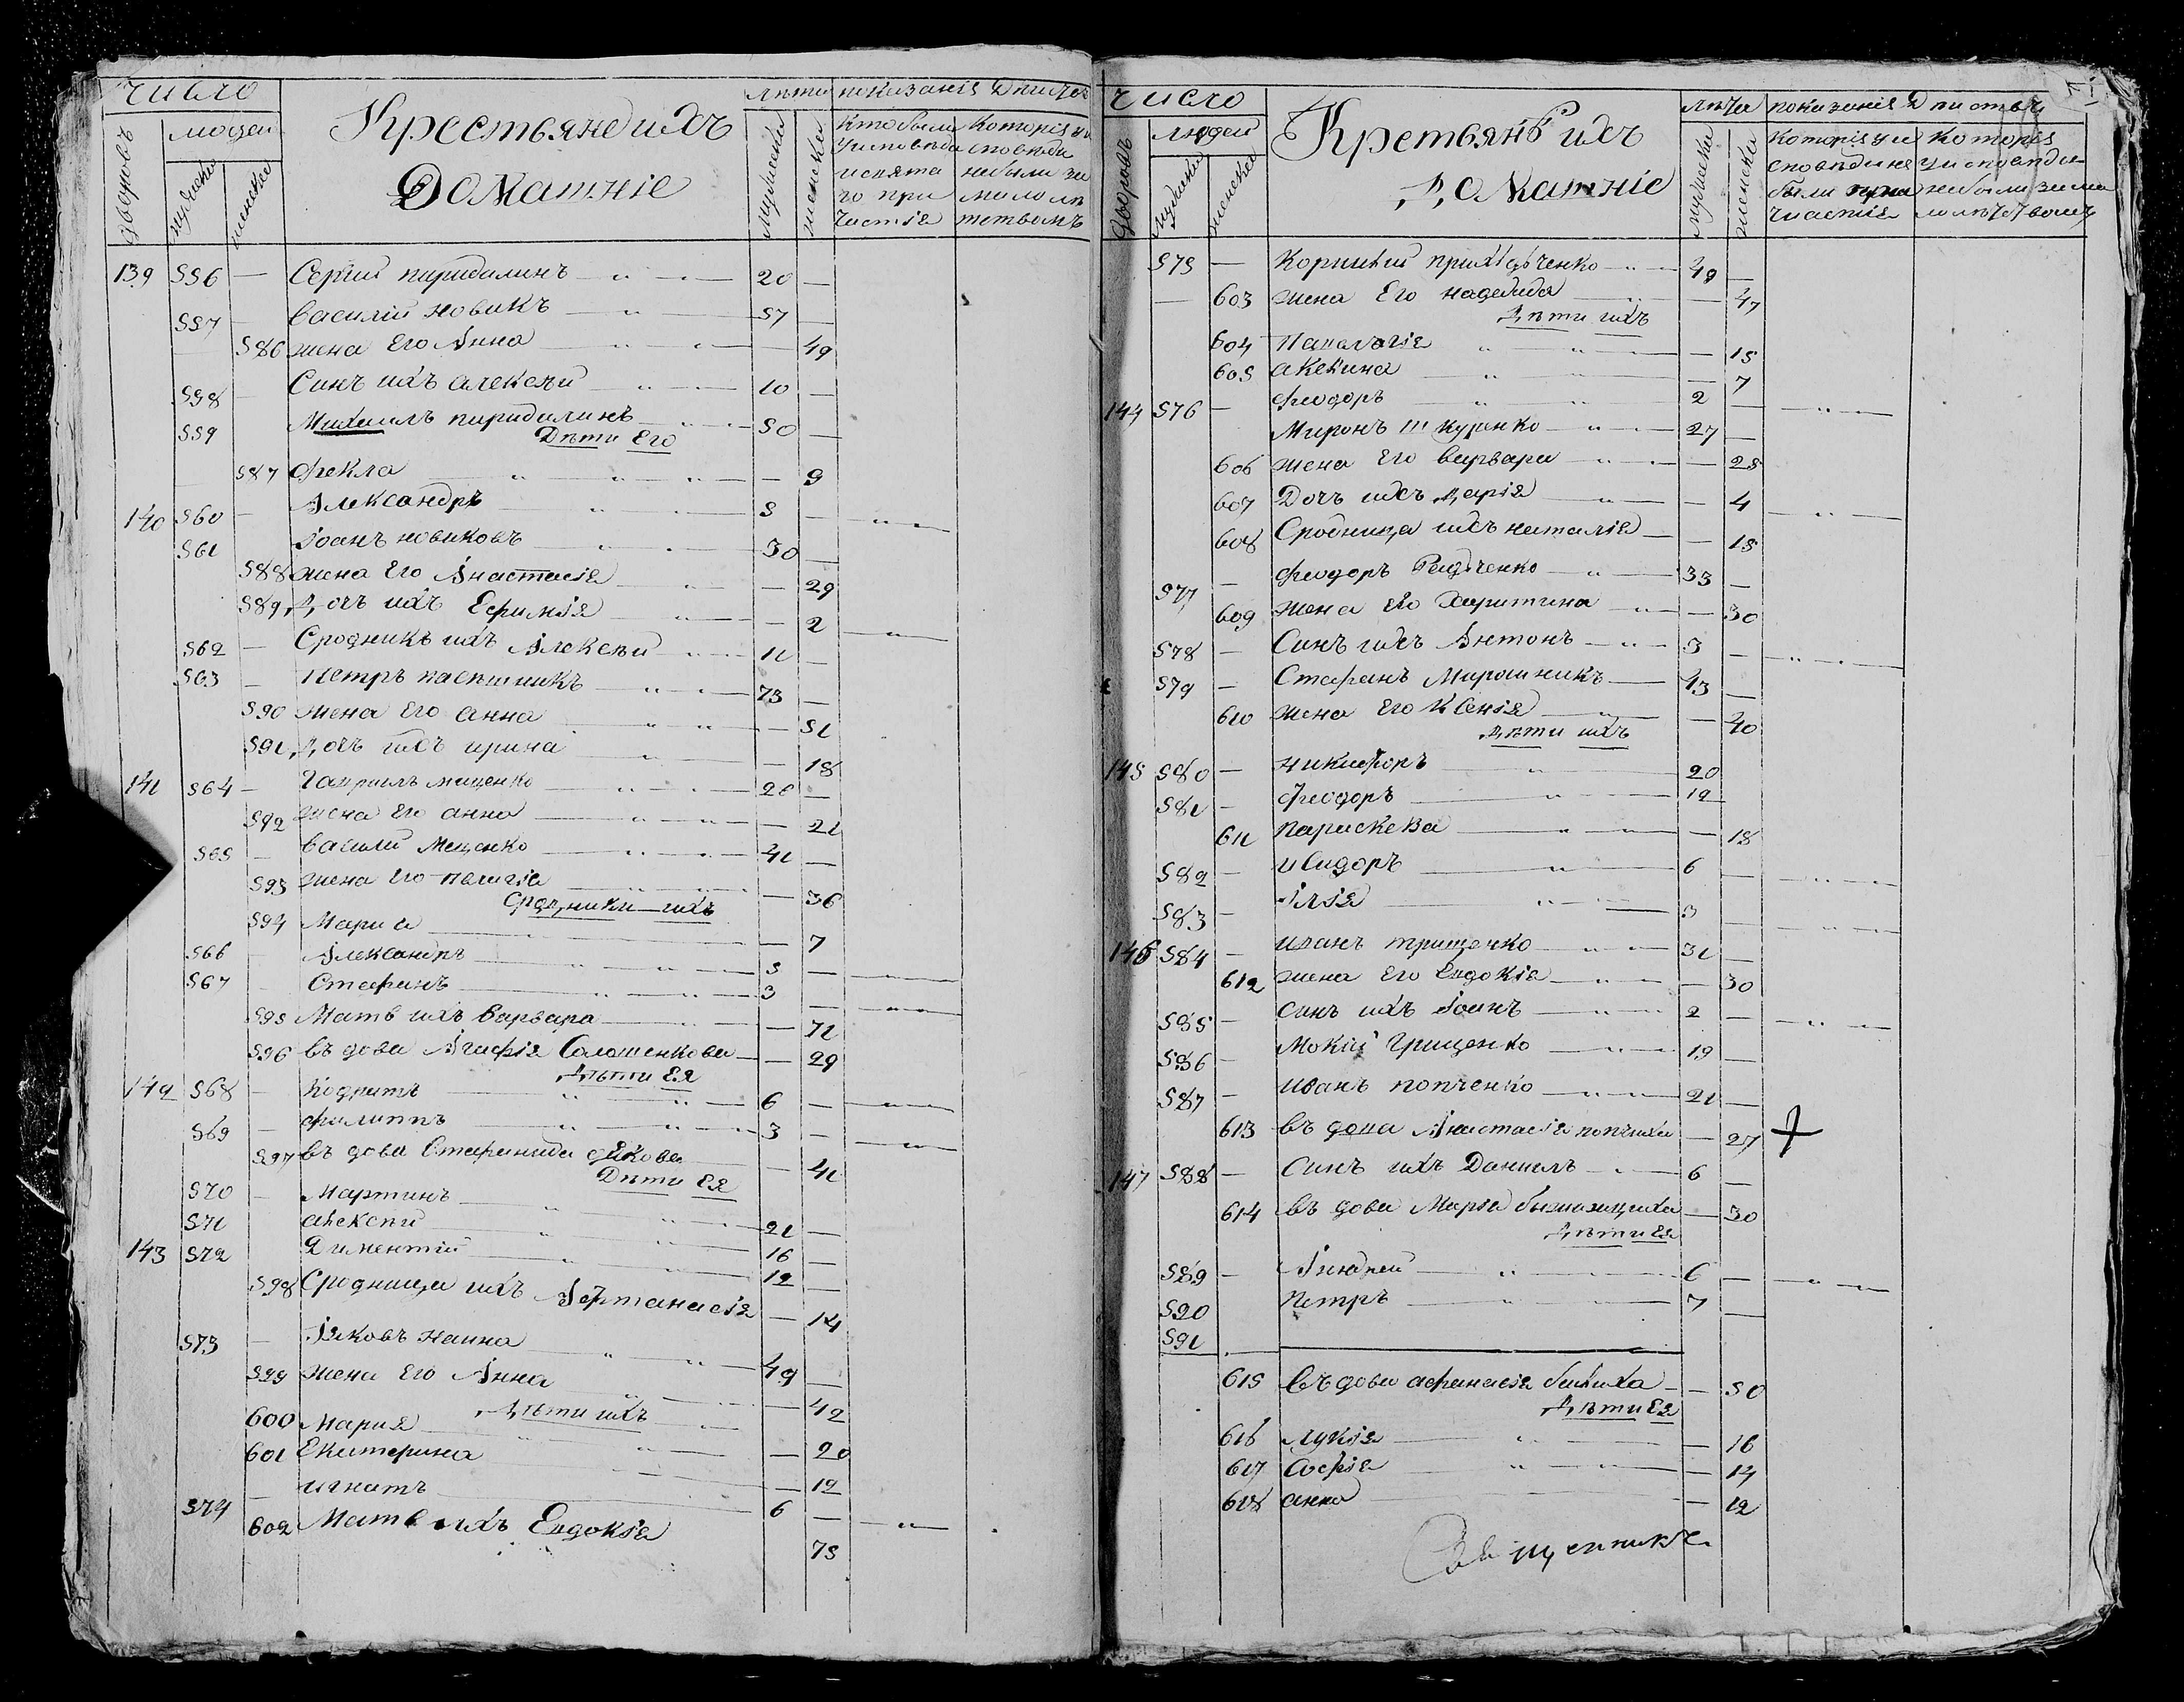 Число
людей
Крестьяне ихъ
Домашніе
дворовъ
мужеска
женска
лѣта
мужеска
женска
показанія
Кто были
у исповѣди
и святаго
причастія
Которіе у исповѣди
не были за
малолѣтствомъ
139 556 — Сергій 20 —
557 — Василій Новикъ 57 —
586 жена Его Анна — 49
558 — Синъ ихъ Алексѣй 10 —
559 Михаилъ 50 —
Дѣти Его
587 Фекла — 9
140 560 — Александръ 5 —
561 Іоанъ Новиковъ 30 —
588 жена Его Анастасія — 29
589 Дочь ихъ Ефимія — 2
562 — Сродникъ ихъ Алексѣй 11 —
563 — Петръ Пасѣшникъ 73 —
590 жена Его Анна — 51
591 Дочь ихъ Ирина — 18
141 564 — Гавриилъ Мещенко 20 —
592 жена Его Анна — 21
565 — Василій Мещенко 41 —
593 жена Его Пелагія — 36
Сродники ихъ
594 Мариа — 7
566 — Александръ 5 —
567 Стефанъ 3 —
595 Мать ихъ Варвара — 71
596 Вдова Агафія Соломенкова — 29
Дѣти Ея
142 568 — Кодратъ 6 —
569 — Филиппъ 3 —
597 Вдова Стефанида — 41
Дѣти Ея
570 — Мартинъ 21 —
571 Алексѣй 16 —
143 572 Дементій 12 —
598 Сродница ихъ — 14
573 — Іяковъ 49 —
599 жена Его Анна — 42
Дѣти ихъ
600 Мария — 20
601 Екатерина — 12
574 — Игнатъ 6 —
602 Мать ихъ Евдокія 75
Число
людей
Крестьянѣ ихъ
Домашніе
дворовъ
мужеска
женска
лѣта
мужеска
женска
показанія
Которіе у исповѣди
были
причастія
Которіе
у исповѣди
не были за ма
лолѣтствомъ
575 — Корнилій 49 —
— 603 жена Его Надежда — 47
Дѣти ихъ
604 Пелагія — 15
605 — 7
144 576 — Феодоръ 2 —
Миронъ Шкуренко 27 —
606 жена Его Варвара — 25
607 Дочь ихъ Дарія — 4
608 Сродница ихъ Наталія — 15
577 — Феодоръ 33 —
609 жена Его Харитина — 30
578 — Синъ ихъ Антонъ 3 —
579 — Стефанъ Мирошникъ 43 —
610 жена Его Ксенія — 40
Дѣти ихъ
145 580 — Никифоръ 20
581 — Феодоръ 12
611 Параскева — 18
582 — Исидоръ 6 —
583 — Ілія 3 —
146 584 — Иванъ Грищенко 31 —
612 жена Его Евдокія — 30
585 — Синъ ихъ Іоанъ 2 —
586 — Мокій Грищенко 19 —
587 — Иванъ Попченко 21 —
613 Вдова Анастасія — 27
147 588 — Синъ ихъ Даниилъ 6 —
614 Вдова Марія — 30
Дѣти Ея
589 — Андрей 6 —
590 Петръ 7 —
591
615 Вдова Афанасія — 50
Дѣти Ея
616 Лукія — 16
617 Софія — 14
618 Анна — 12
Священникъ